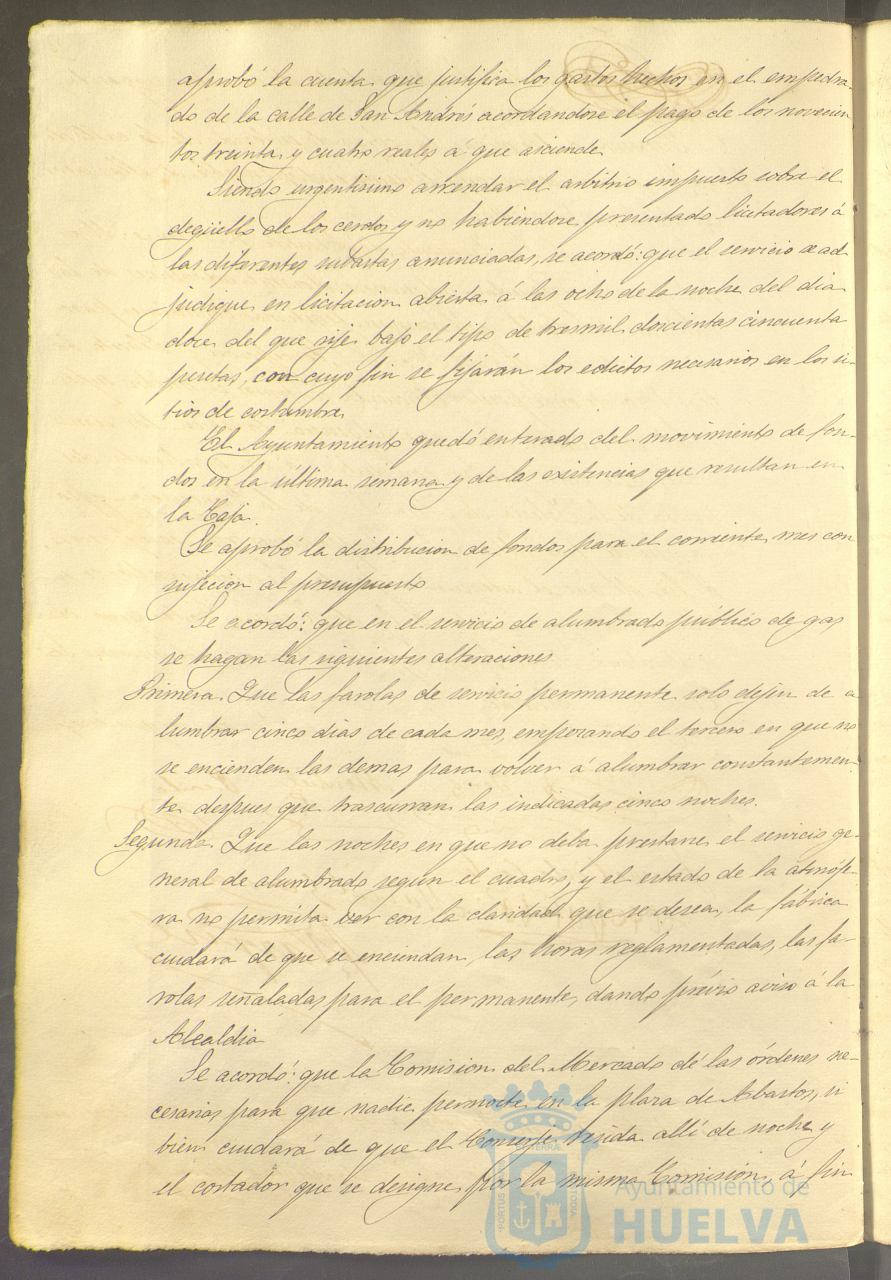 aprobó la cuenta que justifica los gastos hechos en el empedra-
do de la calle de San Andrés acordandose el pago de los novecien
tos treinta y cuatro reales á que asciende
Siendo urgentisimo arrendar el arbitrio impuesto sobre el
degüello de los cerdos y no habiendose presentado licitadores á
las diferentes subastas anunciadas, se acordó: que el servicio se ad
judique en licitacion abierta á las ocho de la noche del dia
doce del que rije bajo el tipo de tresmil doscientas cincuenta
pesetas, con cuyo fin se fijarán los edictos necesarios en los si-
tios de costumbre
El Ayuntamiento quedó enterado del movimiento de fon-
dos en la última semana y de las existencias que resultan en
la Caja.
Se aprobó la distribucion de fondos para el corriente mes con
sujecion al presupuesto
Se acordó: que en el servicio de alumbrado público de gas
se hagan las siguientes alteraciones
Primera. Que las farolas de servicio permanente solo dejen de a
lumbrar cinco dias de cada mes, empezando el tercero en que no
se encienden las demas para volver á alumbrar constantemen-
te despues que trascurran las indicadas cinco noches.
Segunda. Que las noches en que no deba prestarse el servicio ge-
neral de alumbrado segun el cuadro, y el estado de la atmósfe-
ra no permita ver con la claridad que se desea, la fábrica
cuidará de que se enciendan, las horas reglamentadas, las fa-
rolas señaladas para el permanente, dando prévio aviso á la
Alcaldia
Se acordó: que la Comision del Mercado dé las órdenes ne-
cesarias para que nadie pernocte en la plaza de Abastos, si
bien cuidará de que el Conserje resida allí de noche y
el cortador que se designe por la misma Comisión, á fin
PORTUS
TERRAE
CUSTODIA
Ayuntamiento de
HUELVA